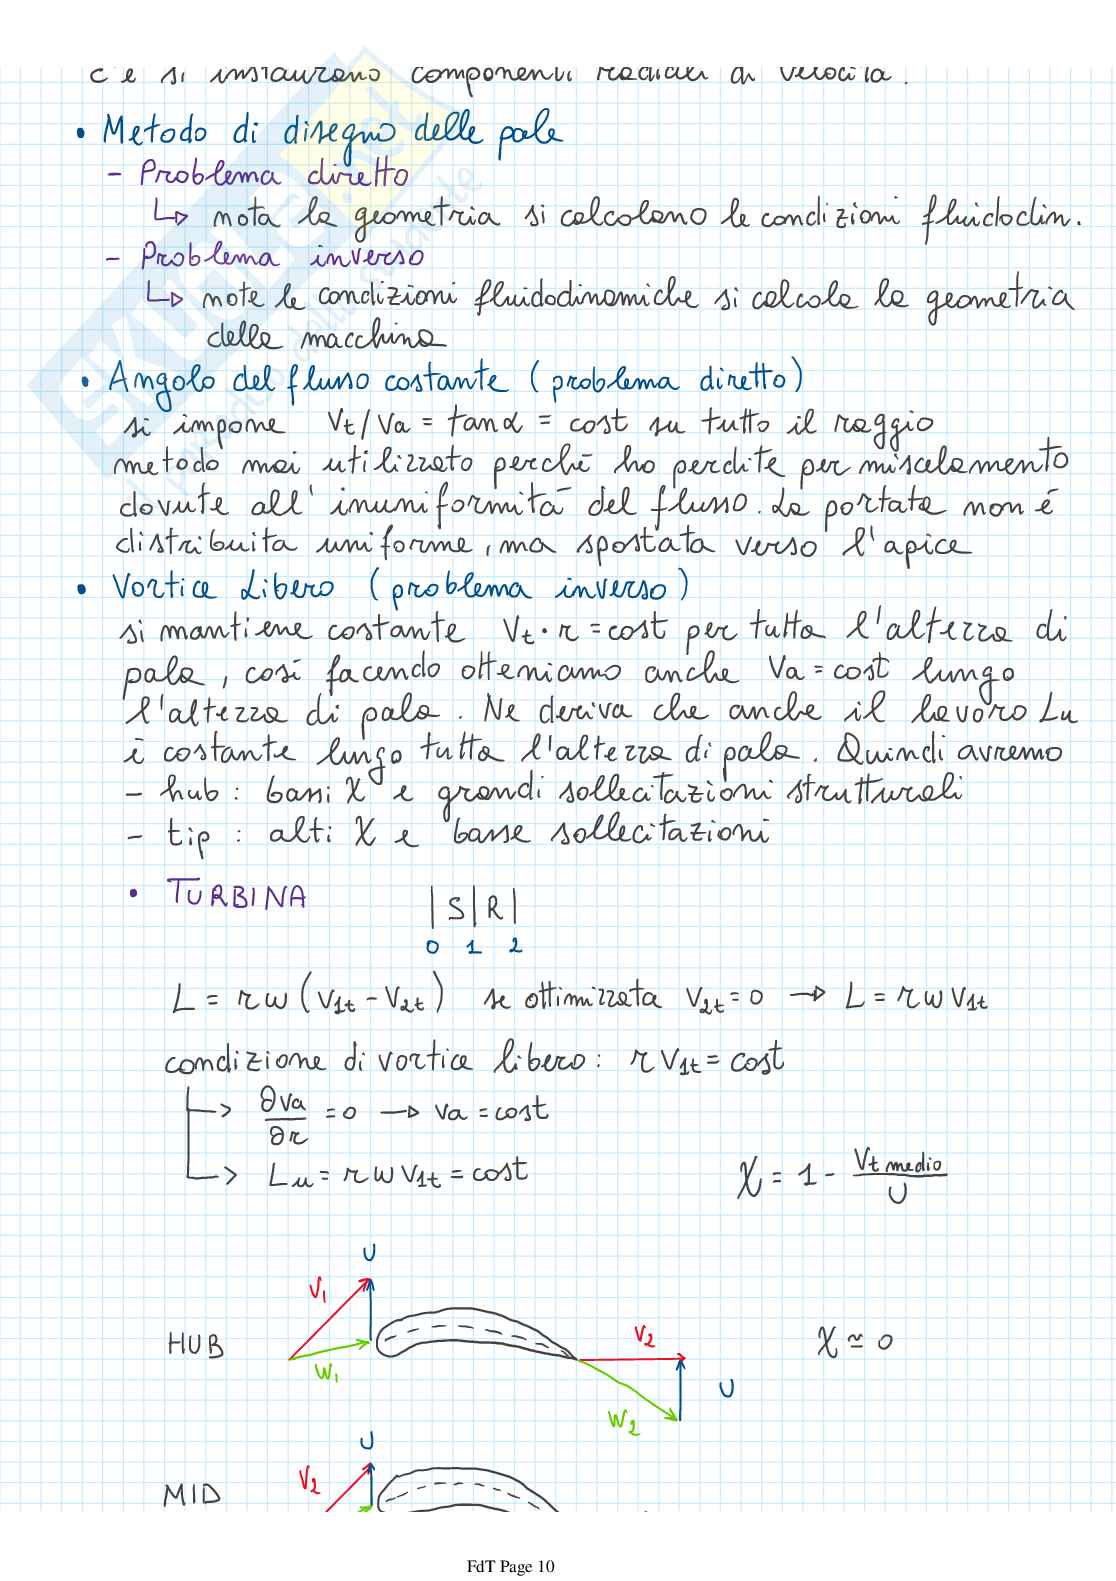 c'è si instaurano componenti radiali di velocità.
• Metodo di disegno delle pale
- Problema diretto
↳ nota la geometria si calcolano le condizioni fluidodin.
- Problema inverso
↳ note le condizioni fluidodinamiche si calcola la geometria
della macchina
• Angolo del flusso costante (problema diretto)
si impone Vt/Va = tanα = cost su tutto il raggio
metodo mai utilizzato perché ho perdite per miscelamento
dovute all'inuniformità del flusso. La portata non è
distribuita uniforme, ma spostata verso l'apice
• Vortice Libero (problema inverso)
si mantiene costante Vt·r = cost per tutta l'altezza di
pala, così facendo otteniamo anche Va = cost lungo
l'altezza di pala. Ne deriva che anche il lavoro Lu
è costante lungo tutta l'altezza di pala. Quindi avremo
- hub: bassi χ e grandi sollecitazioni strutturali
- tip: alti χ e basse sollecitazioni
• TURBINA
|S|R|
0 1 2
L = rω(V1t - V2t) se ottimizzata V2t = 0 → L = rωV1t
condizione di vortice libero: rV1t = cost
↳ ∂Va/∂r = 0 → Va = cost
↳ Lu = rωV1t = cost
χ = 1 - Vt medio/U
U
V1
HUB
W1
V2
χ ≃ 0
U
W2
U
V2
MID
SKUOLA.net
FdT Page 10